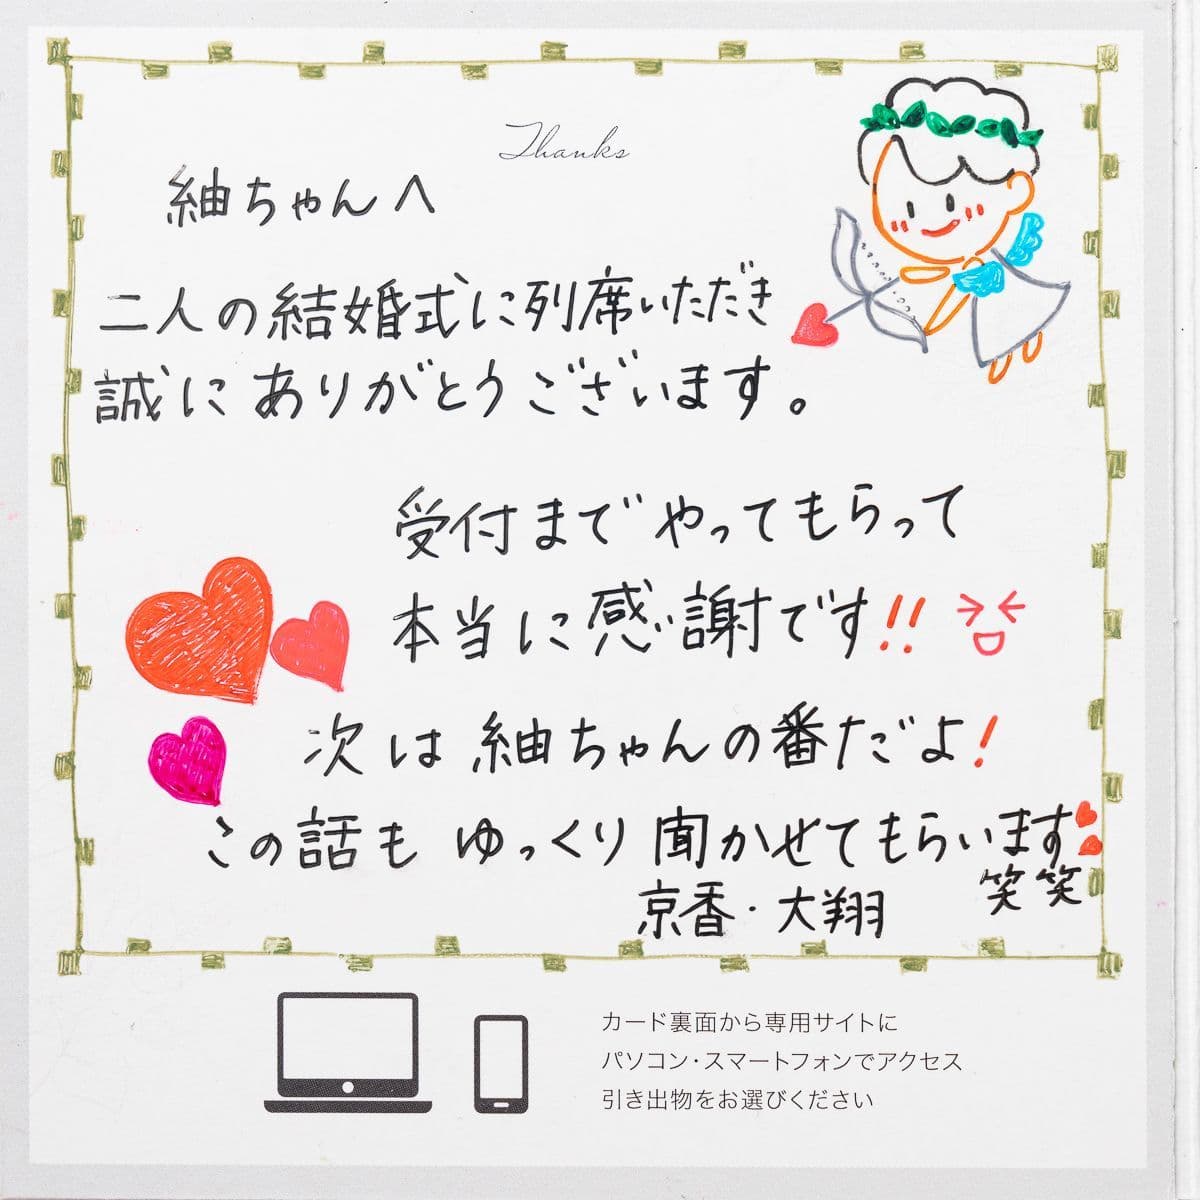 Thanks
紬ちゃんへ
二人の結婚式に列席いただき
誠にありがとうございます。
受付までやってもらって
本当に感謝です!!
次は紬ちゃんの番だよ!
この話もゆっくり聞かせてもらいます
笑笑
京香・大翔
カード裏面から専用サイトに
パソコン・スマートフォンでアクセス
引き出物をお選びください